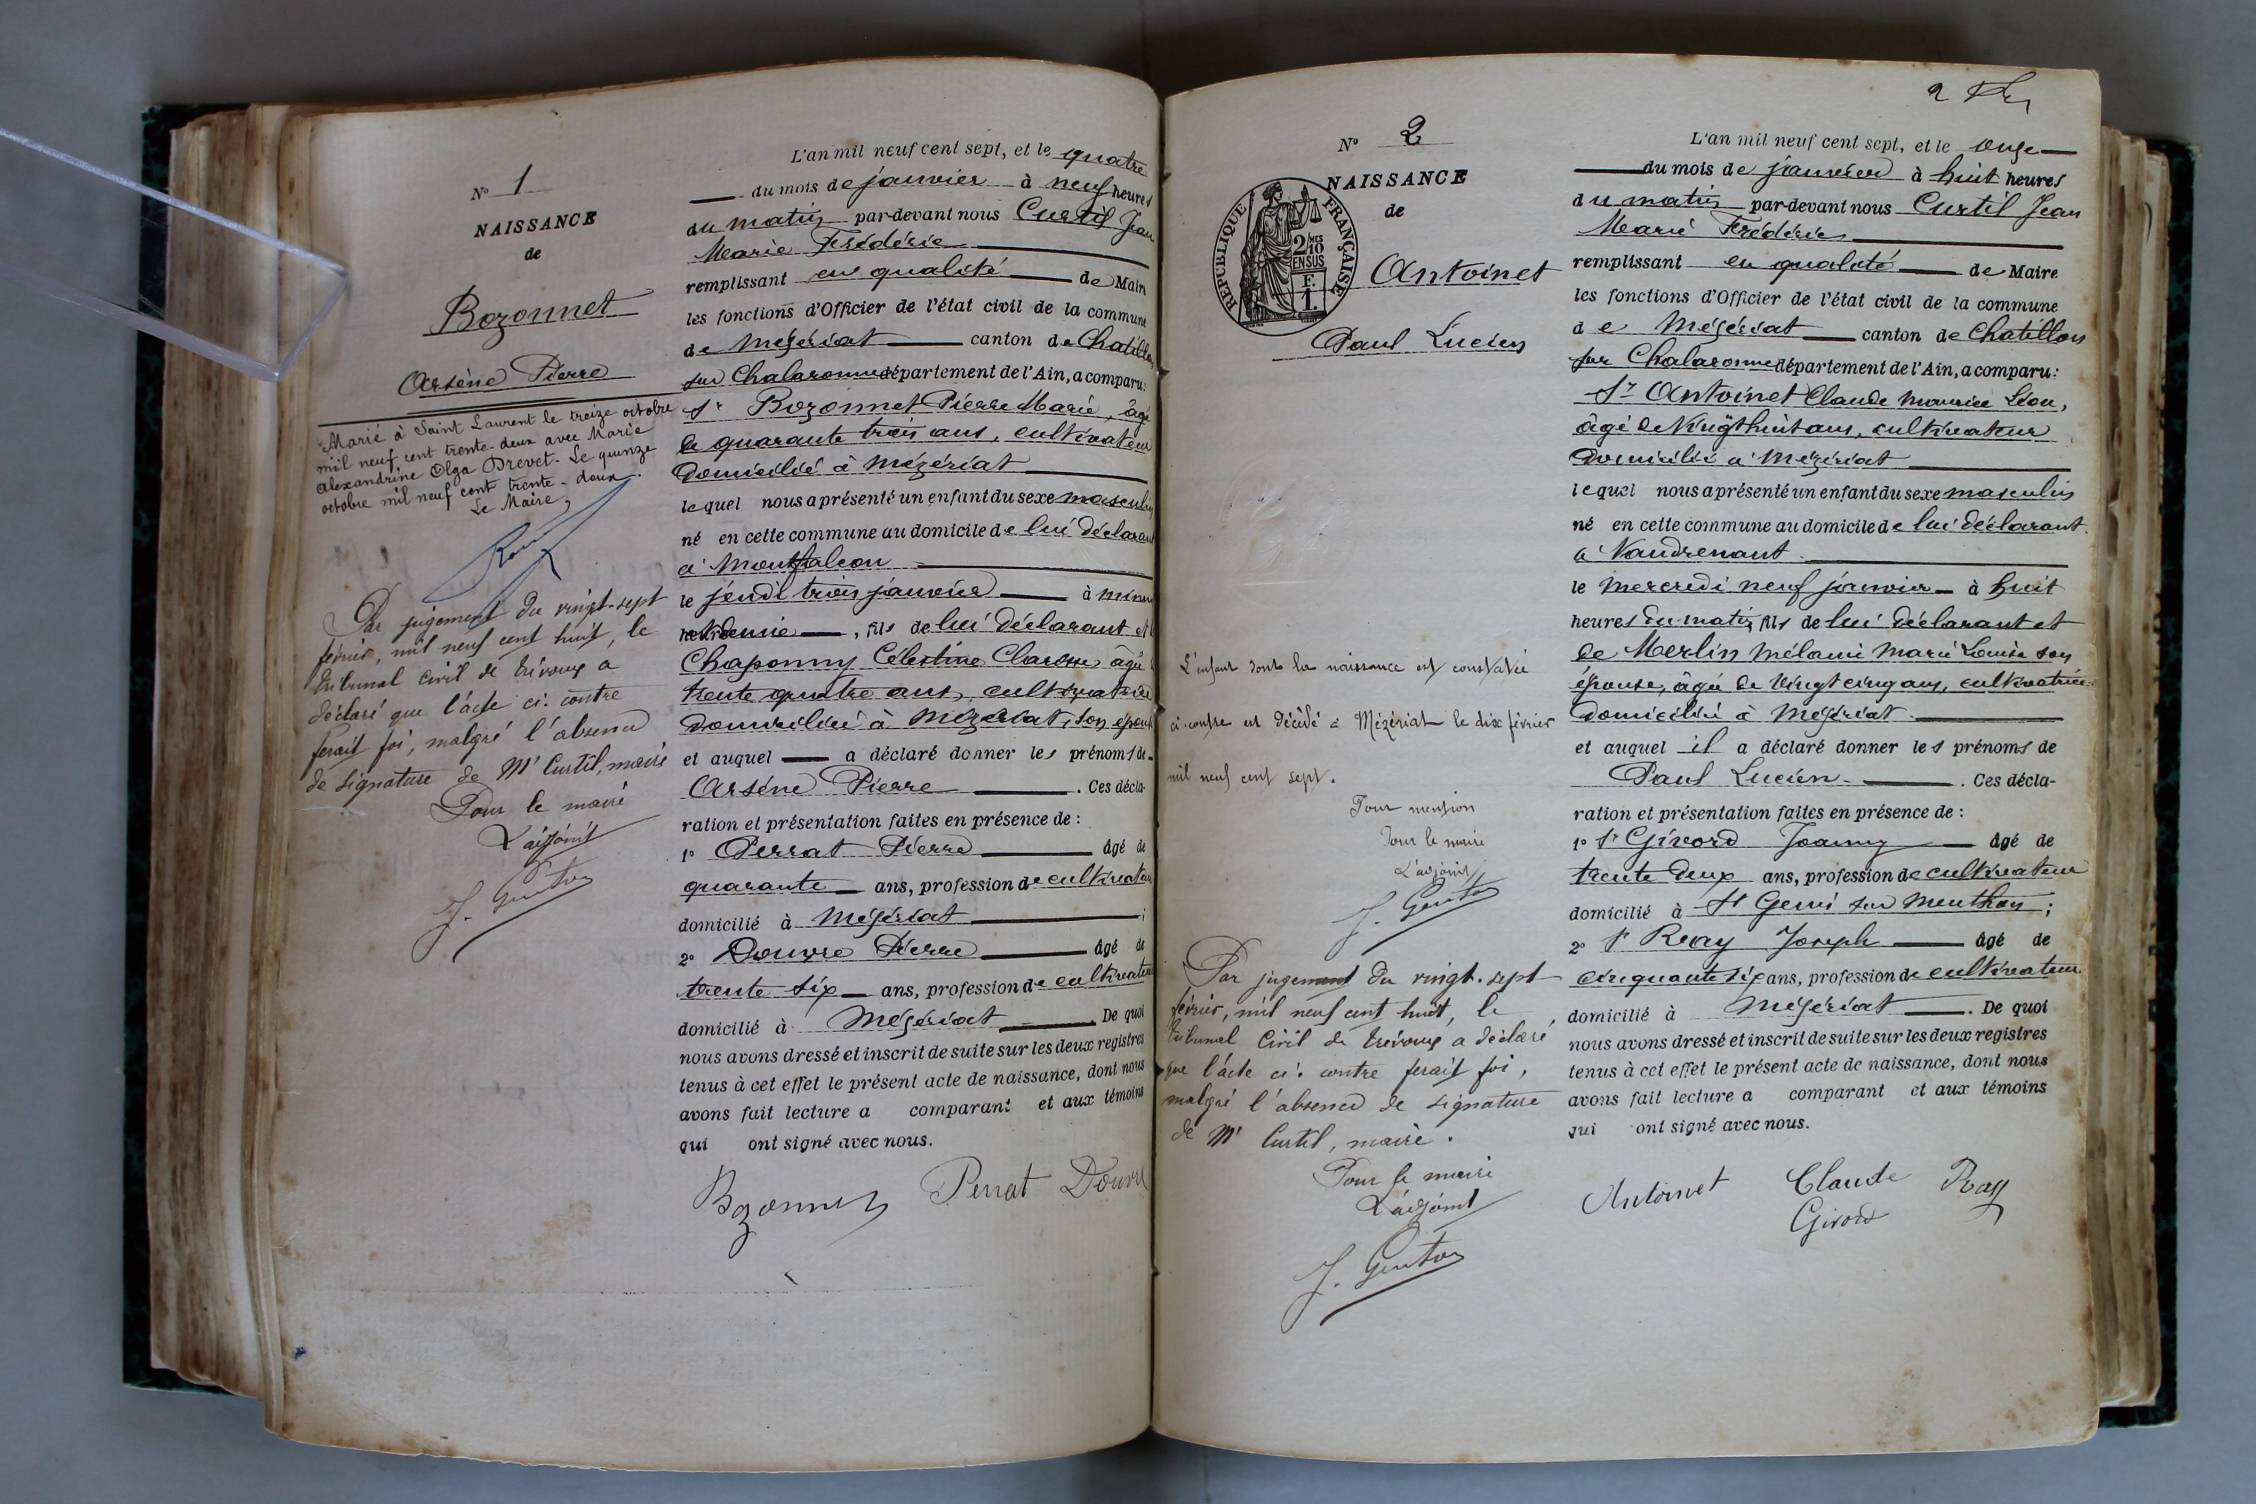 N° 1
NAISSANCE
de
Bozonnet
Arsène Pierre
Marié à Saint Laurent le treize octobre
mil neuf cent trente-deux avec Marie
Alexandrine Olga Drevet. Le quinze
octobre mil neuf cent trente-deux.
Le Maire,
Par jugement du vingt-sept
février, mil neuf cent huit, le
tribunal civil de Trévoux a
déclaré que l'acte ci-contre
ferait foi, malgré l'absence
de signature de Mr Curtil, maire
Pour le maire
L'adjoint
J. Genton
L'an mil neuf cent sept, et le quatre
du mois de janvier à neuf heures
du matin par-devant nous Curtil Jean
Marie Frédéric
remplissant en qualité de Maire
les fonctions d'Officier de l'état civil de la commune
de Mézériat canton de Chatillon
sur Chalaronne département de l'Ain, a comparu:
Sr Bozonnet Pierre Marie, âgé
de quarante trois ans, cultivateur
domicilié à Mézériat
lequel nous a présenté un enfant du sexe masculin
né en cette commune au domicile de lui déclarant
à Montfalcon
le jeudi trois janvier à minuit
et demie, fils de lui déclarant et
Chaponny Célestine Clarisse âgée
trente quatre ans, cultivatrice
domiciliée à Mézériat, son épouse
et auquel a déclaré donner les prénoms de
Arsène Pierre. Ces décla-
ration et présentation faites en présence de :
1° Perrat Pierre âgé de
quarante ans, profession de cultivateur
domicilié à Mézériat ;
2° Douvre Pierre âgé de
trente six ans, profession de cultivateur
domicilié à Mézériat. De quoi
nous avons dressé et inscrit de suite sur les deux registres
tenus à cet effet le présent acte de naissance, dont nous
avons fait lecture a comparant et aux témoins
qui ont signé avec nous.
Bozonnet Perrat Douvre
N° 2
NAISSANCE
de
RÉPUBLIQUE FRANÇAISE
2/10 MES
EN SUS
F.
1.
Antoinet
Paul Lucien
L'enfant dont la naissance est constatée
ci-contre est décédé à Mézériat le dix février
mil neuf cent sept.
Pour mention
Pour le maire
L'adjoint
J. Genton
Par jugement du vingt-sept
février, mil neuf cent huit, le
tribunal civil de Trévoux a déclaré
que l'acte ci-contre ferait foi,
malgré l'absence de signature
de Mr Curtil, maire.
Pour le maire
L'adjoint
J. Genton
2
L'an mil neuf cent sept, et le onze
du mois de janvier à huit heures
du matin par-devant nous Curtil Jean
Marie Frédéric
remplissant en qualité de Maire
les fonctions d'Officier de l'état civil de la commune
de Mézériat canton de Chatillon
sur Chalaronne département de l'Ain, a comparu:
Sr Antoinet Claude Maurice Léon,
âgé de vingt huit ans, cultivateur
domicilié à Mézériat
lequel nous a présenté un enfant du sexe masculin
né en cette commune au domicile de lui déclarant
à Vandrenant
le mercredi neuf janvier à huit
heures du matin, fils de lui déclarant et
de Merlin Mélanie Marie Louise son
épouse, âgée de vingt cinq ans, cultivatrice
domiciliée à Mézériat.
et auquel il a déclaré donner les prénoms de
Paul Lucien. Ces décla-
ration et présentation faites en présence de :
1° Sr Givord Joanny âgé de
trente deux ans, profession de cultivateur
domicilié à St Genis sur Menthon ;
2° Sr Ray Joseph âgé de
cinquante six ans, profession de cultivateur
domicilié à Mézériat. De quoi
nous avons dressé et inscrit de suite sur les deux registres
tenus à cet effet le présent acte de naissance, dont nous
avons fait lecture a comparant et aux témoins
qui ont signé avec nous.
Antoinet Claude Ray
Givord